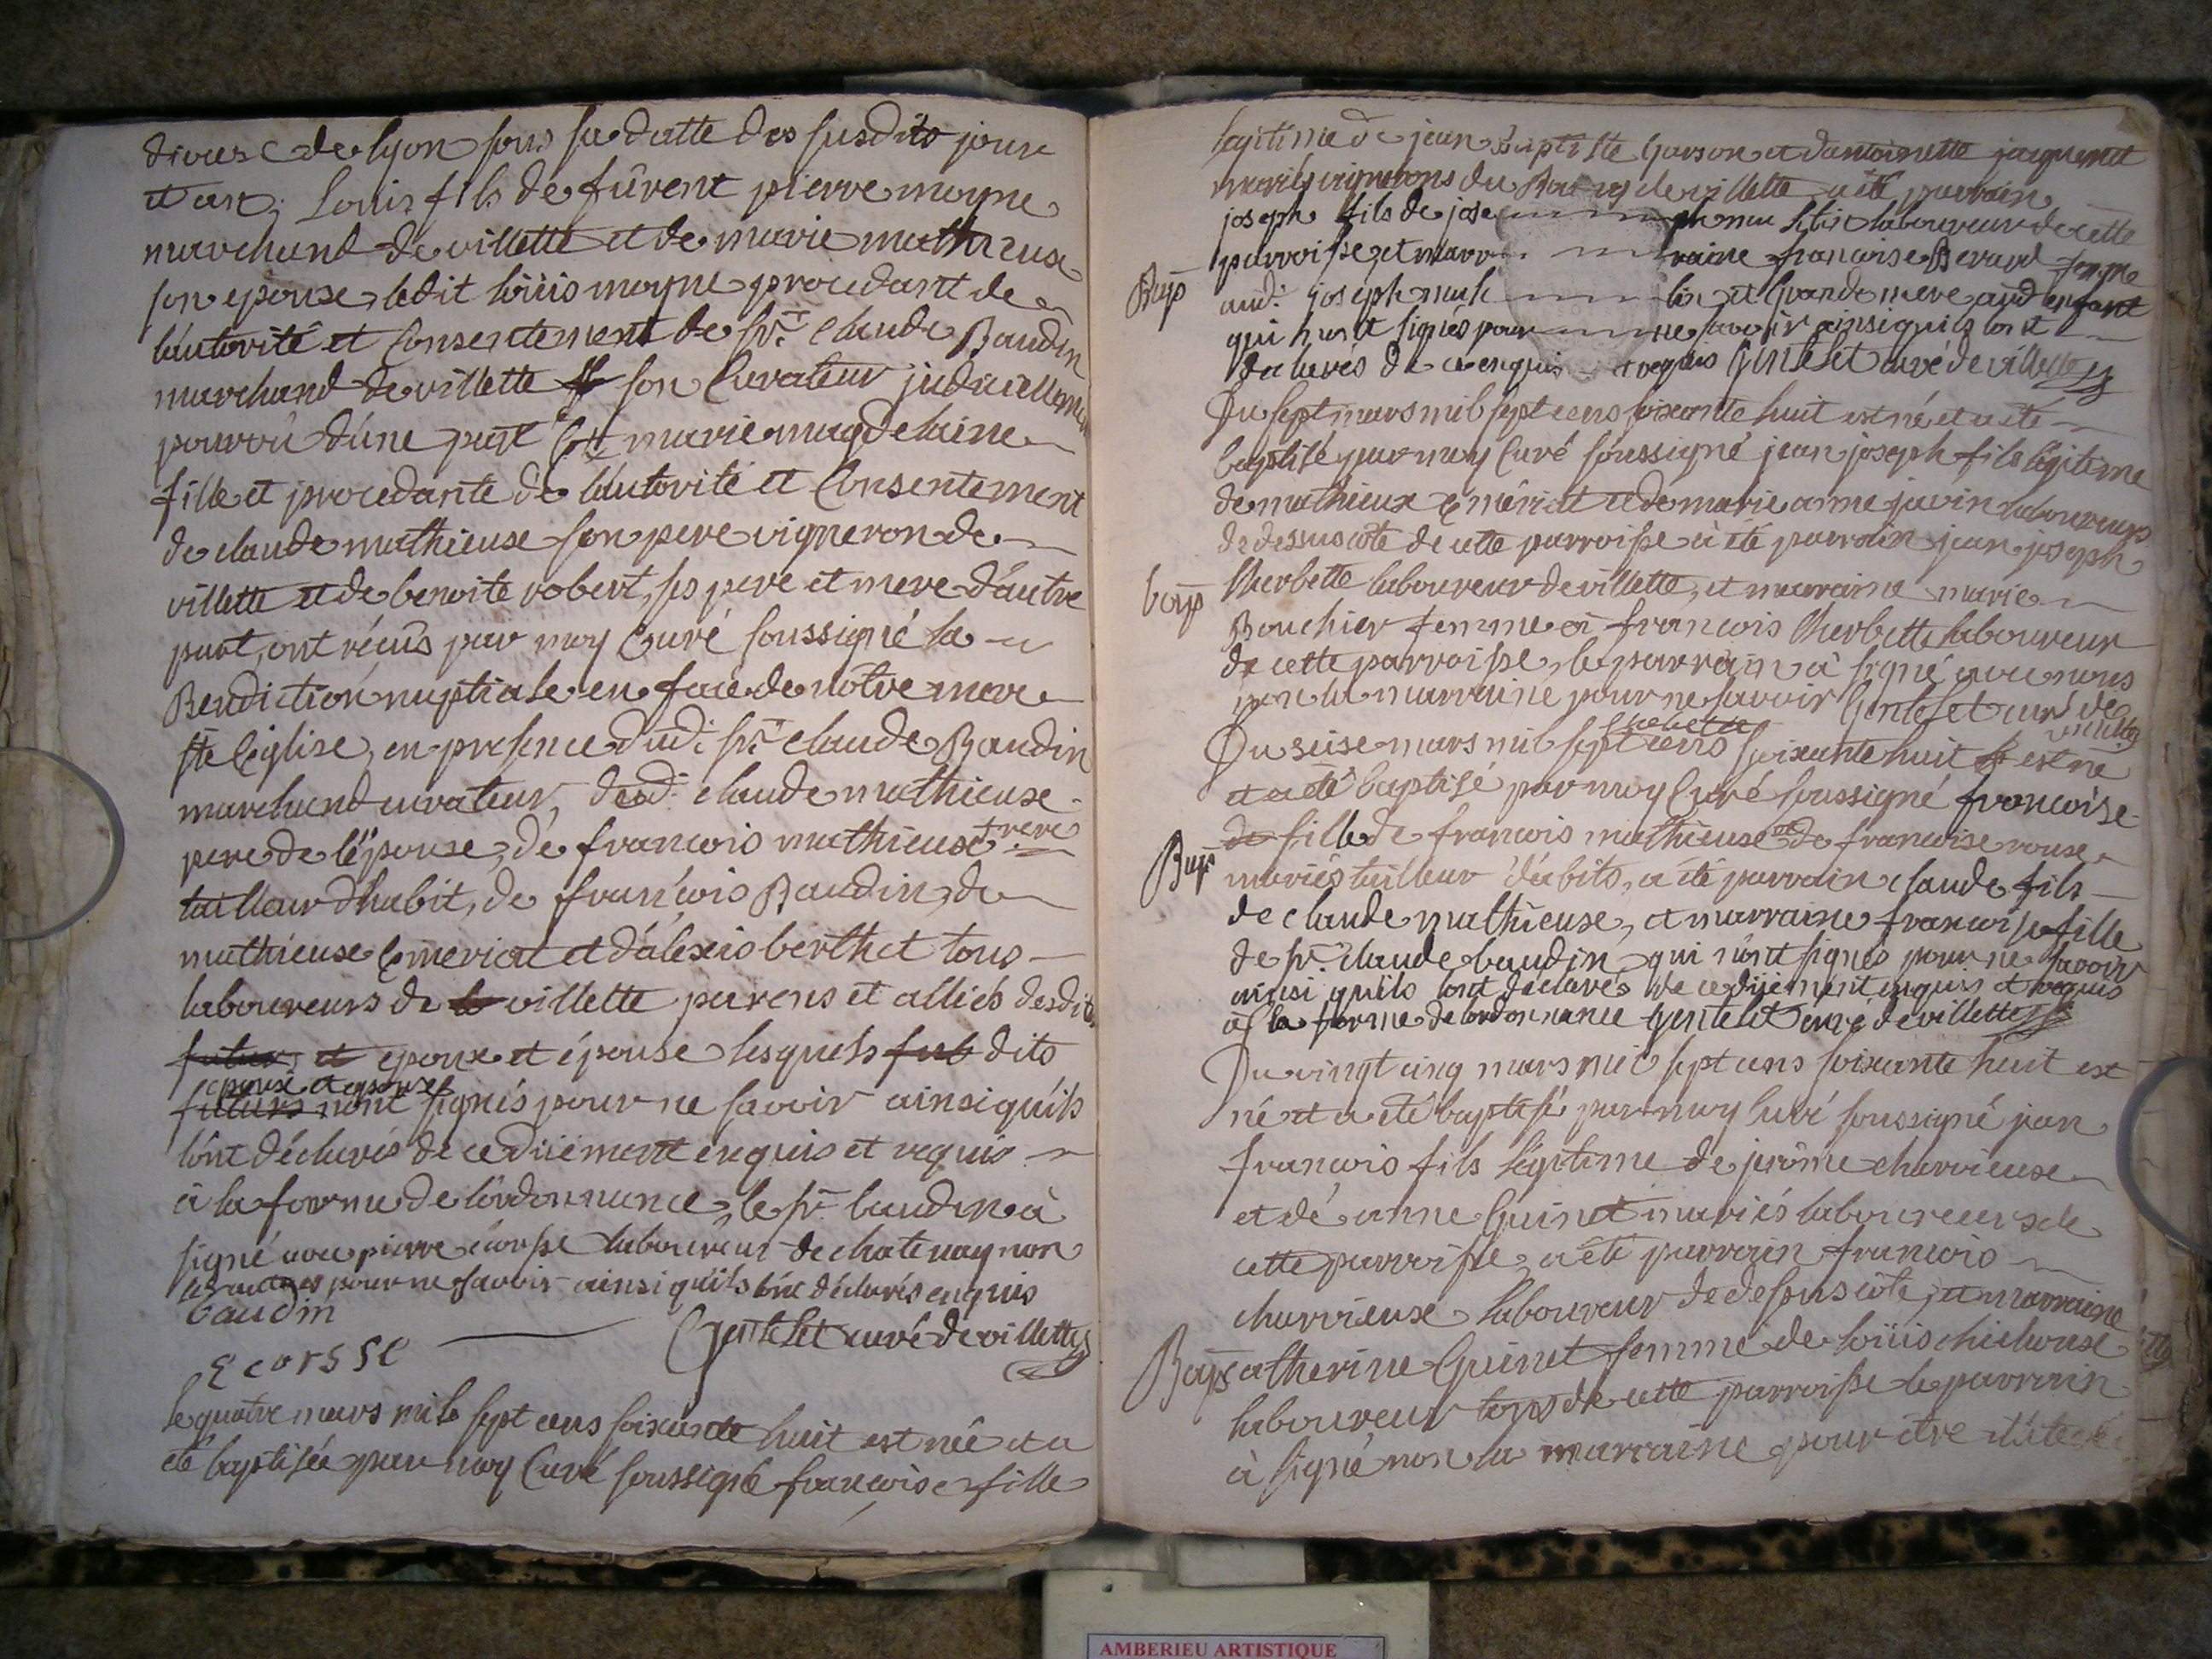 diocese de lyon sous sa datte des susdits jour
et an; Louis fils de fûrent pierre moyne
marchand de villette et de marie mathieux
son epouse, ledit loüis moyne procedant de
lautorité et Consentement de sr. claude Baudin
marchand de villette son Curateur judiciellement
pourvû d'úne part Et marie magdelaine
fille et procedante de lautorité et Consentement
de claude mathieuse son pere vigneron de
villette et de benoite robert, ses pere et mere d'autre
part, ont réçûs par moy Curé soussigné la
Benediction nuptiale en face de nôtre mere
ste Eglise, en presence dud: sr. claude Baudin
marchand curateur, dud: claude mathieuse
pere de l'épouse, de francois mathieuse frere
tailleur dhabit, de francois Baudin, de
mathieuse Emeriat et d'alexis berthet tous
laboureurs de villette parens et alliés desdits
futurs et epoux et épouse lesquels sub dits
epoux et epouse
futurs n'ont signés pour ne savoir ainsi quils
lônt déclarés de ce dûement enquis et requis
à la forme de l'ordonnance, le sr. baudin à
signé avec pierre écorsse laboureur de chatenay non
les autres pour ne savoir ainsi quils lônt déclarés enquis
baudin
Ecorsse
Gentelet curé de villette
le quatre mars mil sept cens soixante huit est née et a
été baptisée par moy Curé soussigné francoise fille
legitime de jean Baptiste Garson et dantoinette jaquemet
mariés vignerons du Bourg de villette a été parrain
joseph fils de jose ph laboureur de cette
parroisse, et marr raine francoise Berard femme
Bap
aud: joseph lin et Grande mere aud enfant
qui n'ont signés pour ne savoir ainsi quils lont
declarés de ce enquis et requis Gentelet curé de villette
Du sept mars mil sept cens soixante huit est né et a été
baptisé par moy Curé soussigné jean joseph fils légitime
de mathieux Emériat et de marie anne javin laboureurs
de dessus côte de cette parroisse à été parrain jean joseph
bap
Cherbette laboureur de villette, et marraine marie
Bouchier femme à francois Cherbette laboureur
de cette parroisse, le parrain à signé avec nous
non la marraine pour ne savoir Gentelet curé de
villette
Du seise mars mil sept cens soixante huit est né
et a été baptisé par moy Curé soussigné francoise
de fille de francois mathieuse et de francoise rouse
Bap
mariés tailleur d'abits, a été parrain claude fils
de claude mathieuse, et marraine francoise fille
de sr. claude baudin, qui n'ônt signés pour ne savoir
ainsi quils lont déclarés de ce dûement enquis et requis
à la forme de lordonnance Gentelet curé de villette
Du vingt cinq mars mil sept cens soixante huit est
né et a été baptisé par moy Curé soussigné jean
francois fils légitime de jerôme charvieuse
et dé anne Guinet mariés laboureurs de
cette parroisse, a été parrain francois
charvieuse laboureur de dessous côte, et marraine
Bap
catherine Guinet femme de loüis chichouse
laboureur tous de cette parroisse le parrain
à signé non la marraine pour être
AMBERIEU ARTISTIQUE